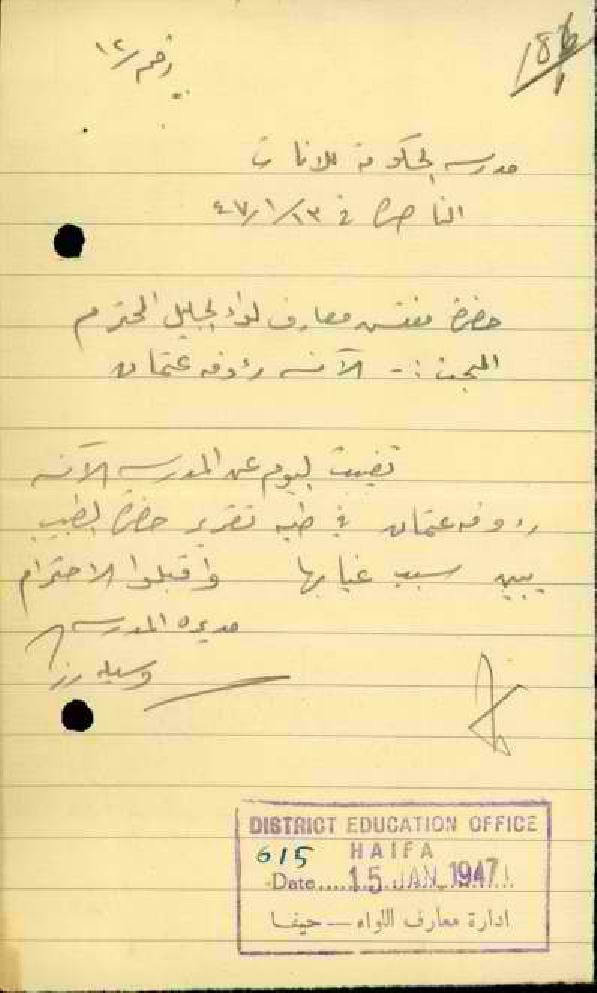 رقم ١٢/
186
مدرسة الحكومة للاناث
الناصرة في ٤٧/١/١٣
حضرة مفتش معارف لواء الجليل المحترم
المبحث :- الآنسه رؤوفه عثمان
تغيبت اليوم عن المدرسه الآنسه
رؤوفه عثمان في طيه تقرير حضرة الطبيب
يبين سبب غيابها واقبلوا الاحترام
مديرة المدرسه
وسيله
DISTRICT EDUCATION OFFICE
615 HAIFA
Date 15 JAN 1947
ادارة معارف اللواء — حيفا